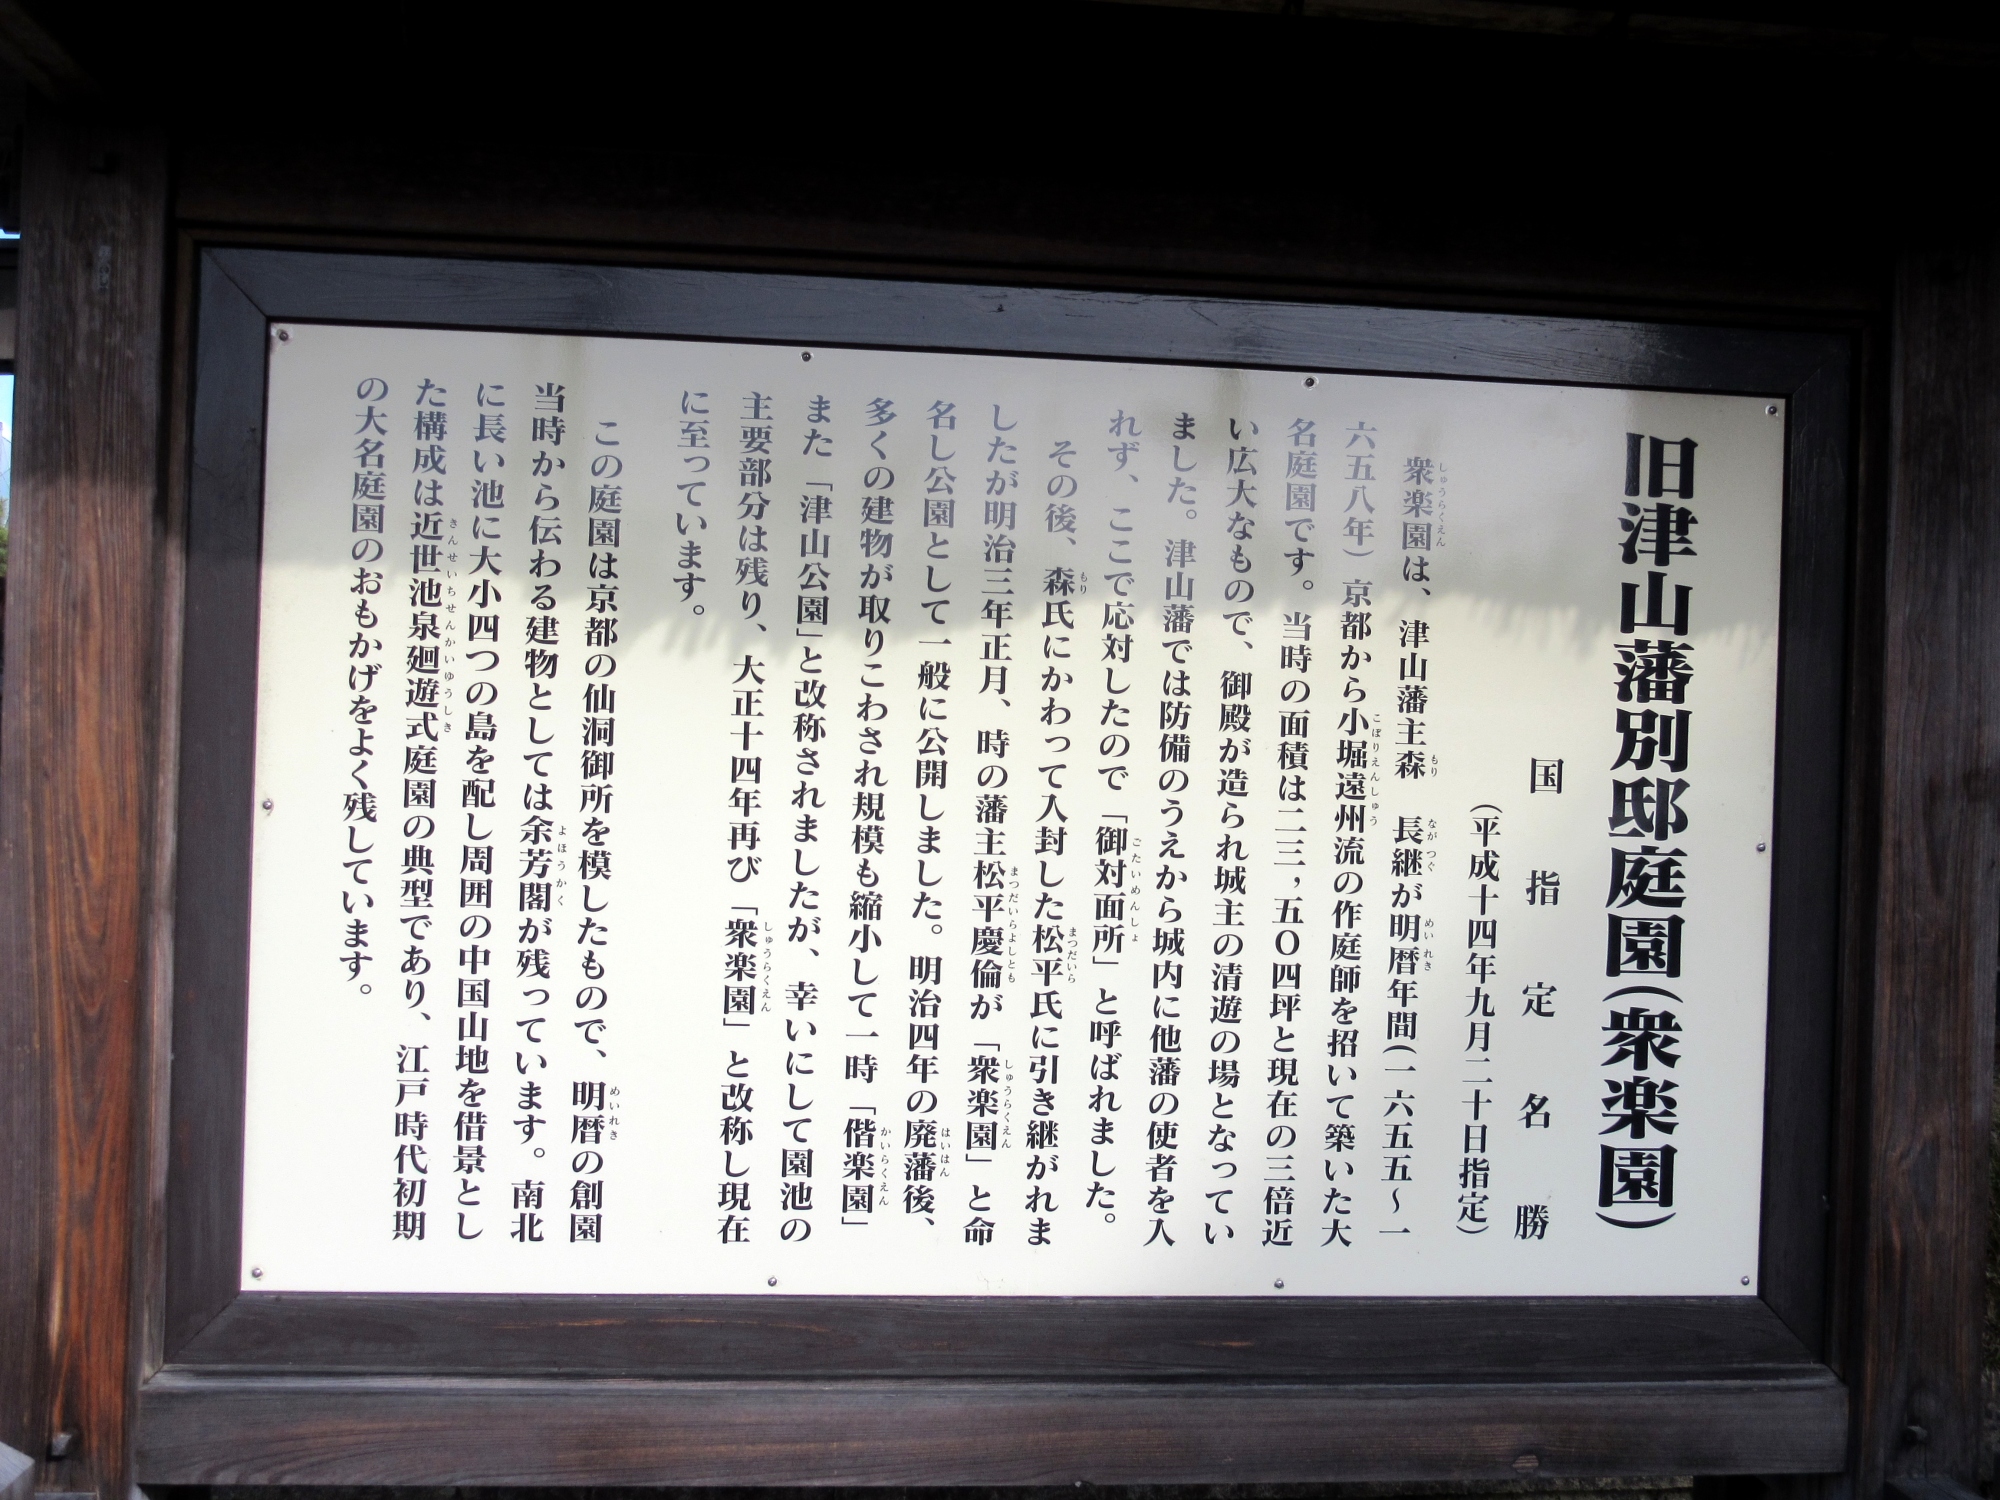 旧津山藩別邸庭園(衆楽園)
国指定名勝
(平成十四年九月二十日指定)
衆楽園は、津山藩主森 長継が明暦年間(一六五五～一
六五八年)京都から小堀遠州流の作庭師を招いて築いた大
名庭園です。当時の面積は二三,五〇四坪と現在の三倍近
い広大なもので、御殿が造られ城主の清遊の場となってい
ました。津山藩では防備のうえから城内に他藩の使者を入
れず、ここで応対したので「御対面所」と呼ばれました。
その後、森氏にかわって入封した松平氏に引き継がれま
したが明治三年正月、時の藩主松平慶倫が「衆楽園」と命
名し公園として一般に公開しました。明治四年の廃藩後、
多くの建物が取りこわされ規模も縮小して一時「偕楽園」
また「津山公園」と改称されましたが、幸いにして園池の
主要部分は残り、大正十四年再び「衆楽園」と改称し現在
に至っています。
この庭園は京都の仙洞御所を模したもので、明暦の創園
当時から伝わる建物としては余芳閣が残っています。南北
に長い池に大小四つの島を配し周囲の中国山地を借景とし
た構成は近世池泉廻遊式庭園の典型であり、江戸時代初期
の大名庭園のおもかげをよく残しています。